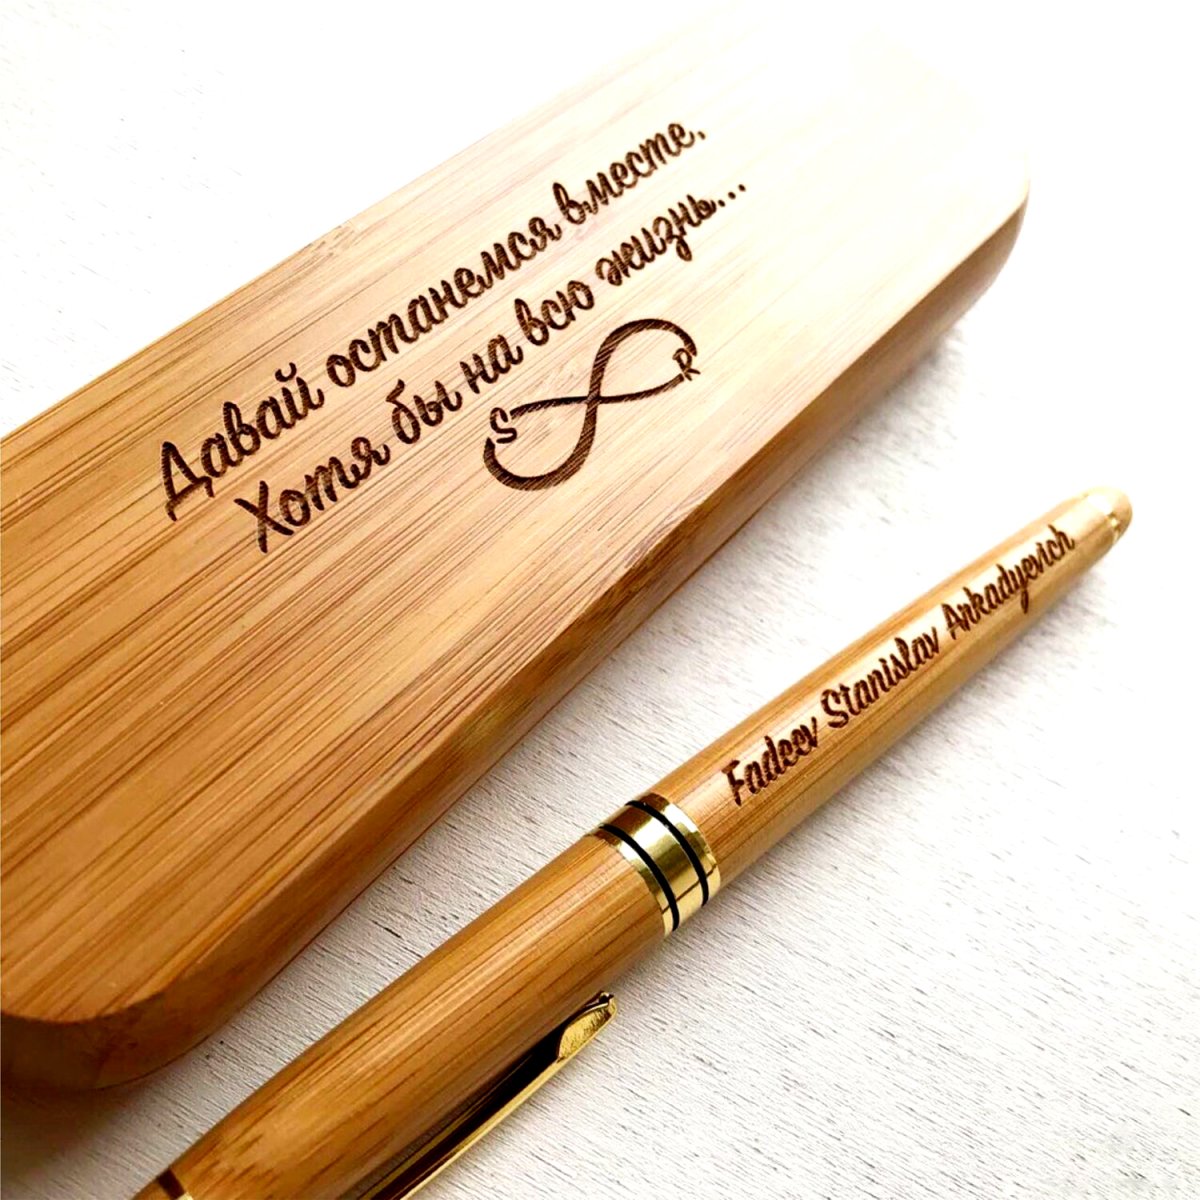 Давай останемся вместе.
Хотя бы на всю жизнь...
S R
Fadeev Stanislav Arkadyevich